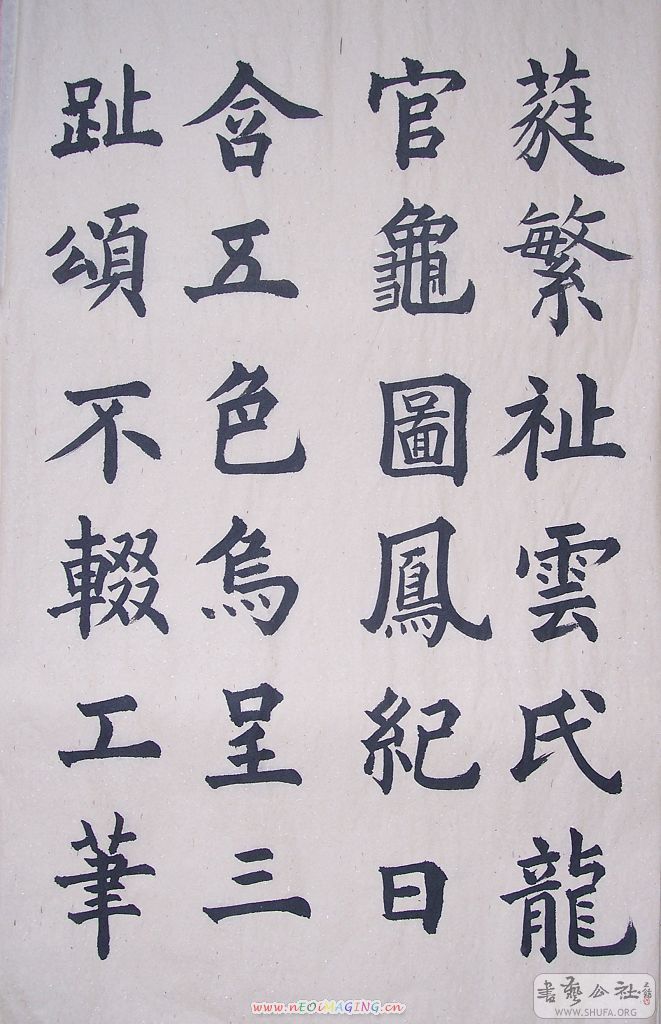 蕤繁祉雲氏龍
官龜圖鳳紀日
含五色烏呈三
趾頌不輟工筆
www.nEOiMAGING.cn
書藝公社
WWW.SHUFA.ORG